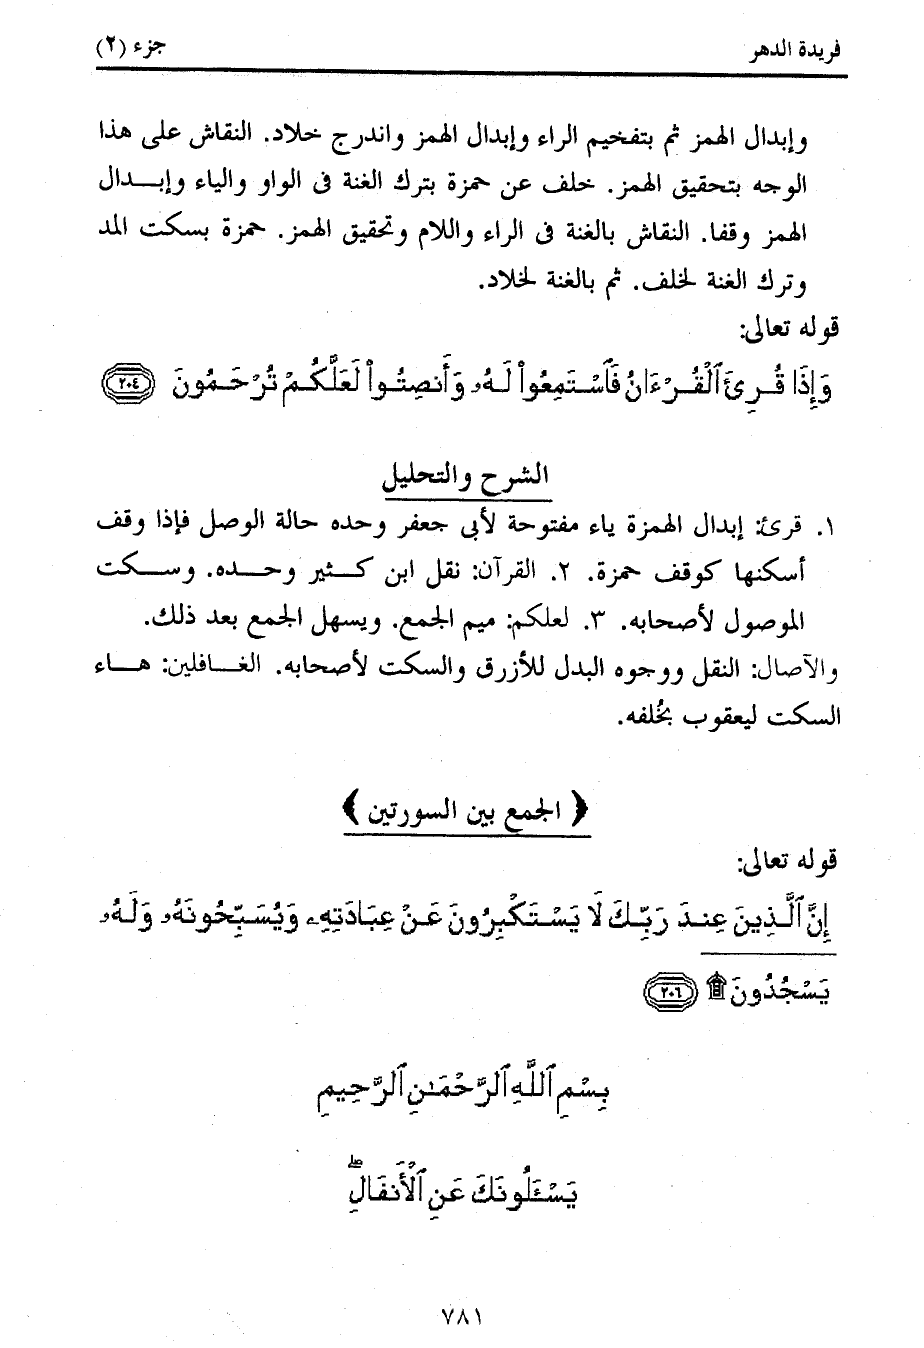 فريدة الدهر جزء (٢)
وإبدال الهمز ثم بتفخيم الراء وإبدال الهمز واندرج خلاد. النقاش على هذا
الوجه بتحقيق الهمز. خلف عن حمزة بترك الغنة فى الواو والياء وإبـــدال
الهمز وقفا. النقاش بالغنة فى الراء واللام وتحقيق الهمز. حمزة بسكت المد
وترك الغنة لخلف. ثم بالغنة لخلاد.
قوله تعالى:
وَإِذَا قُرِئَ ٱلْقُرْءَانُ فَٱسْتَمِعُوا۟ لَهُۥ وَأَنصِتُوا۟ لَعَلَّكُمْ تُرْحَمُونَ ٢٠٤
الشرح والتحليل
١. قرئ: إبدال الهمزة ياء مفتوحة لأبى جعفر وحده حالة الوصل فإذا وقف
أسكنها كوقف حمزة. ٢. القرآن: نقل ابن كـــثير وحـــده. وســـكت
الموصول لأصحابه. ٣. لعلكم: ميم الجمع. ويسهل الجمع بعد ذلك.
والآصال: النقل ووجوه البدل للأزرق والسكت لأصحابه. الغـــافلين: هـــاء
السكت ليعقوب بخُلفه.
﴿ الجمع بين السورتين ﴾
قوله تعالى:
إِنَّ ٱلَّذِينَ عِندَ رَبِّكَ لَا يَسْتَكْبِرُونَ عَنْ عِبَادَتِهِۦ وَيُسَبِّحُونَهُۥ وَلَهُۥ
يَسْجُدُونَ ۩ ٢٠٦
بِسْمِ ٱللَّهِ ٱلرَّحْمَـٰنِ ٱلرَّحِيمِ
يَسْـَٔلُونَكَ عَنِ ٱلْأَنفَالِ ۖ
٧٨١